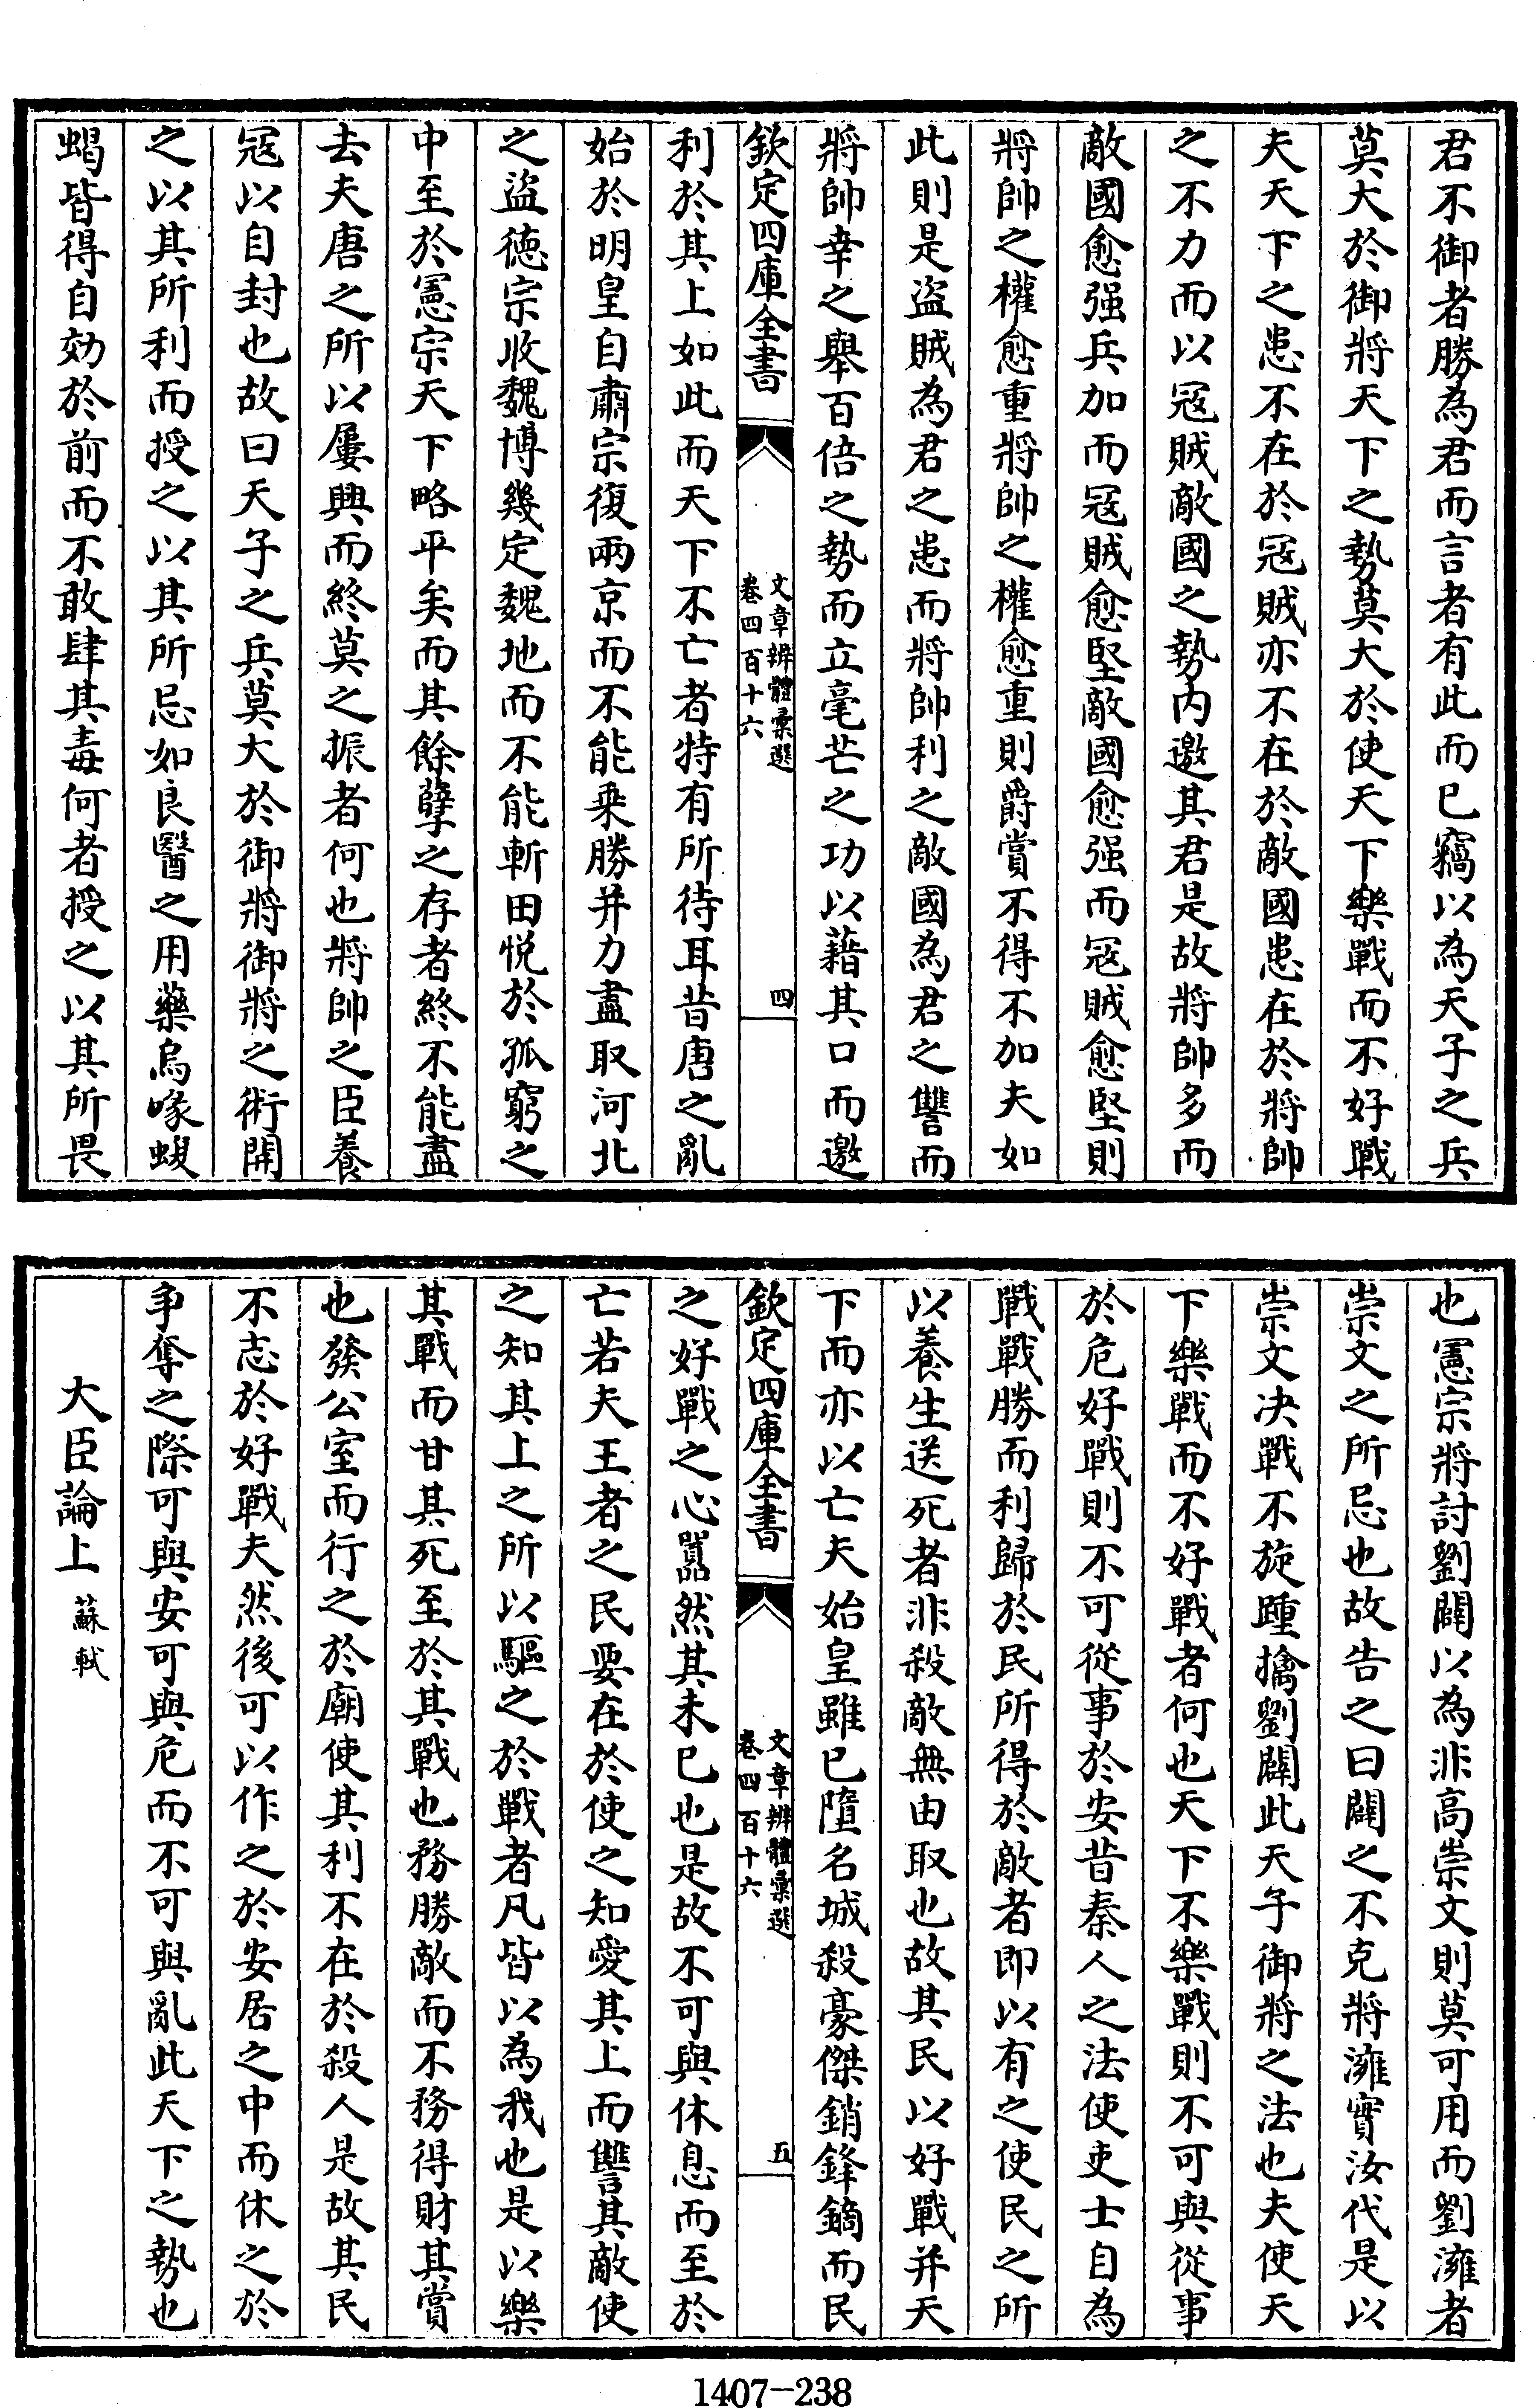 君不御者勝為君而言者有此而已竊以為天子之兵
莫大於御將天下之勢莫大於使天下樂戰而不好戰
夫天下之患不在於冦賊亦不在於敵國患在於將帥
之不力而以冦賊敵國之勢内邀其君是故將帥多而
敵國愈强兵加而冦賊愈堅敵國愈强而冦賊愈堅則
將帥之權愈重將帥之權愈重則爵賞不得不加夫如
此則是盜賊為君之患而將帥利之敵國為君之讐而
將帥幸之舉百倍之勢而立毫芒之功以藉其口而邀
欽定四庫全書
文章辨體彚選
卷四百十六
四
利於其上如此而天下不亡者特有所待耳昔唐之亂
始於明皇自肅宗復兩京而不能乗勝并力盡取河北
之盜德宗收魏博幾定魏地而不能斬田悅於孤窮之
中至於憲宗天下略平矣而其餘孽之存者終不能盡
去夫唐之所以屢興而終莫之振者何也將帥之臣養
冦以自封也故曰天子之兵莫大於御將御將之術開
之以其所利而授之以其所忌如良醫之用藥烏喙蝮
蝎皆得自効於前而不敢肆其毒何者授之以其所畏
也憲宗將討劉闢以為非髙崇文則莫可用而劉澭者
崇文之所忌也故告之曰闢之不克將澭實汝代是以
崇文决戰不旋踵擒劉闢此天子御將之法也夫使天
下樂戰而不好戰者何也天下不樂戰則不可與從事
於危好戰則不可從事於安昔秦人之法使吏士自為
戰戰勝而利歸於民所得於敵者即以有之使民之所
以養生送死者非殺敵無由取也故其民以好戰并天
下而亦以亡夫始皇雖已墮名城殺豪傑銷鋒鏑而民
欽定四庫全書
文章辨體彚選
卷四百十六
五
之好戰之心嚚然其未已也是故不可與休息而至於
亡若夫王者之民要在於使之知愛其上而讐其敵使
之知其上之所以驅之於戰者凡皆以為我也是以樂
其戰而甘其死至於其戰也務勝敵而不務得財其賞
也發公室而行之於廟使其利不在於殺人是故其民
不志於好戰夫然後可以作之於安居之中而休之於
爭奪之際可與安可與危而不可與亂此天下之勢也
大臣論上 蘇軾
1407-238